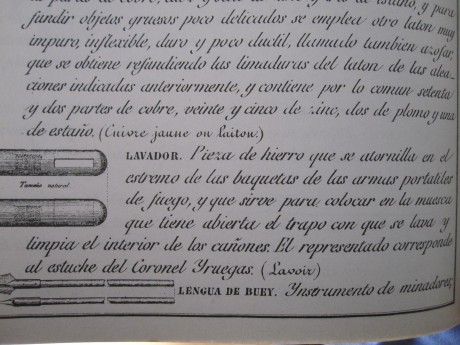 fundir objetos gruesos poco delicados se emplea otro laton muy
impuro, inflexible, duro y poco ductil, llamado tambien azofar,
que se obtiene refundiendo las limaduras del laton de las alea-
ciones indicadas anteriormente, y contiene por lo comun setenta
y dos partes de cobre, veinte y cinco de zinc, dos de plomo y una
de estaño. (Cuivre jaune ou Laiton.)
LAVADOR. Pieza de hierro que se atornilla en el
estremo de las baquetas de las armas portatiles
Tamaño natural.
de fuego, y que sirve para colocar en la muesca
que tiene abierta el trapo con que se lava y
limpia el interior de los cañones. El representado corresponde
al estuche del Coronel Yruegas. (Lavoir)
LENGUA DE BUEY. Ynstrumento de minadores,